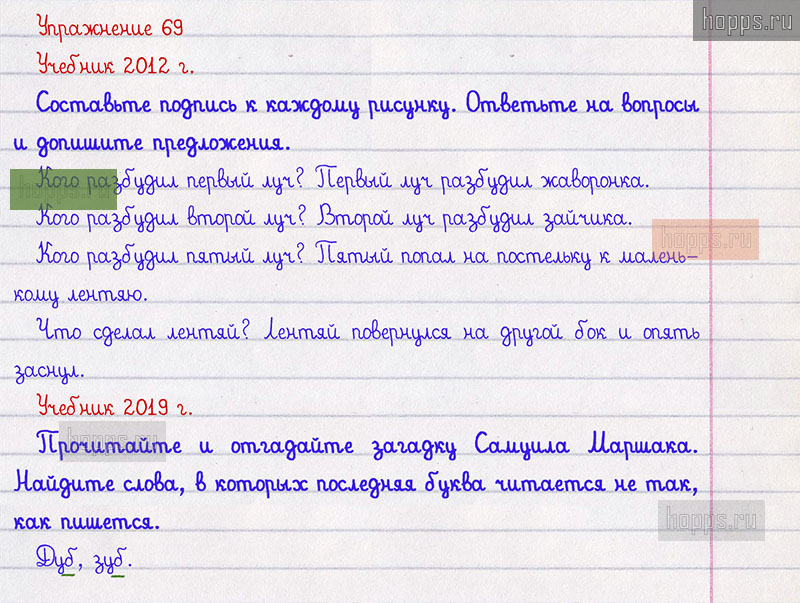 hopps.ru
Упражнение 69
Учебник 2012 г.
Составьте подпись к каждому рисунку. Ответьте на вопросы
и допишите предложения.
Кого разбудил первый луч? Первый луч разбудил жаворонка.
hopps.ru
Кого разбудил второй луч? Второй луч разбудил зайчика.
hopps.ru
Кого разбудил пятый луч? Пятый попал на постельку к малень-
кому лентяю.
Что сделал лентяй? Лентяй повернулся на другой бок и опять
заснул.
Учебник 2019 г.
hopps.ru
Прочитайте и отгадайте загадку Самуила Маршака.
Найдите слова, в которых последняя буква читается не так,
как пишется.
hopps.ru
Дуб, зуб.